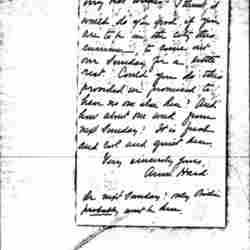 very hot weather. I think it
would do you good if you
are to be in the city this
summer, to come out
one Sunday for a little
rest. Could you do this
provided we promised to
have no one else here? And
how about one week from
next Sunday? It is fresh
and cool and quiet here.
Very sincerely yours,
Anne Head
Or next Sunday? only
probably won't be here.